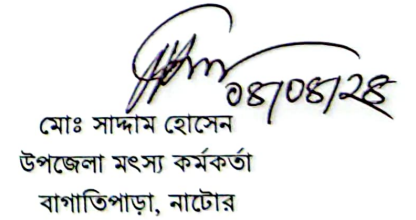 ০৪/০৪/২৪
মোঃ সাদ্দাম হোসেন
উপজেলা মৎস্য কর্মকর্তা
বাগাতিপাড়া, নাটোর